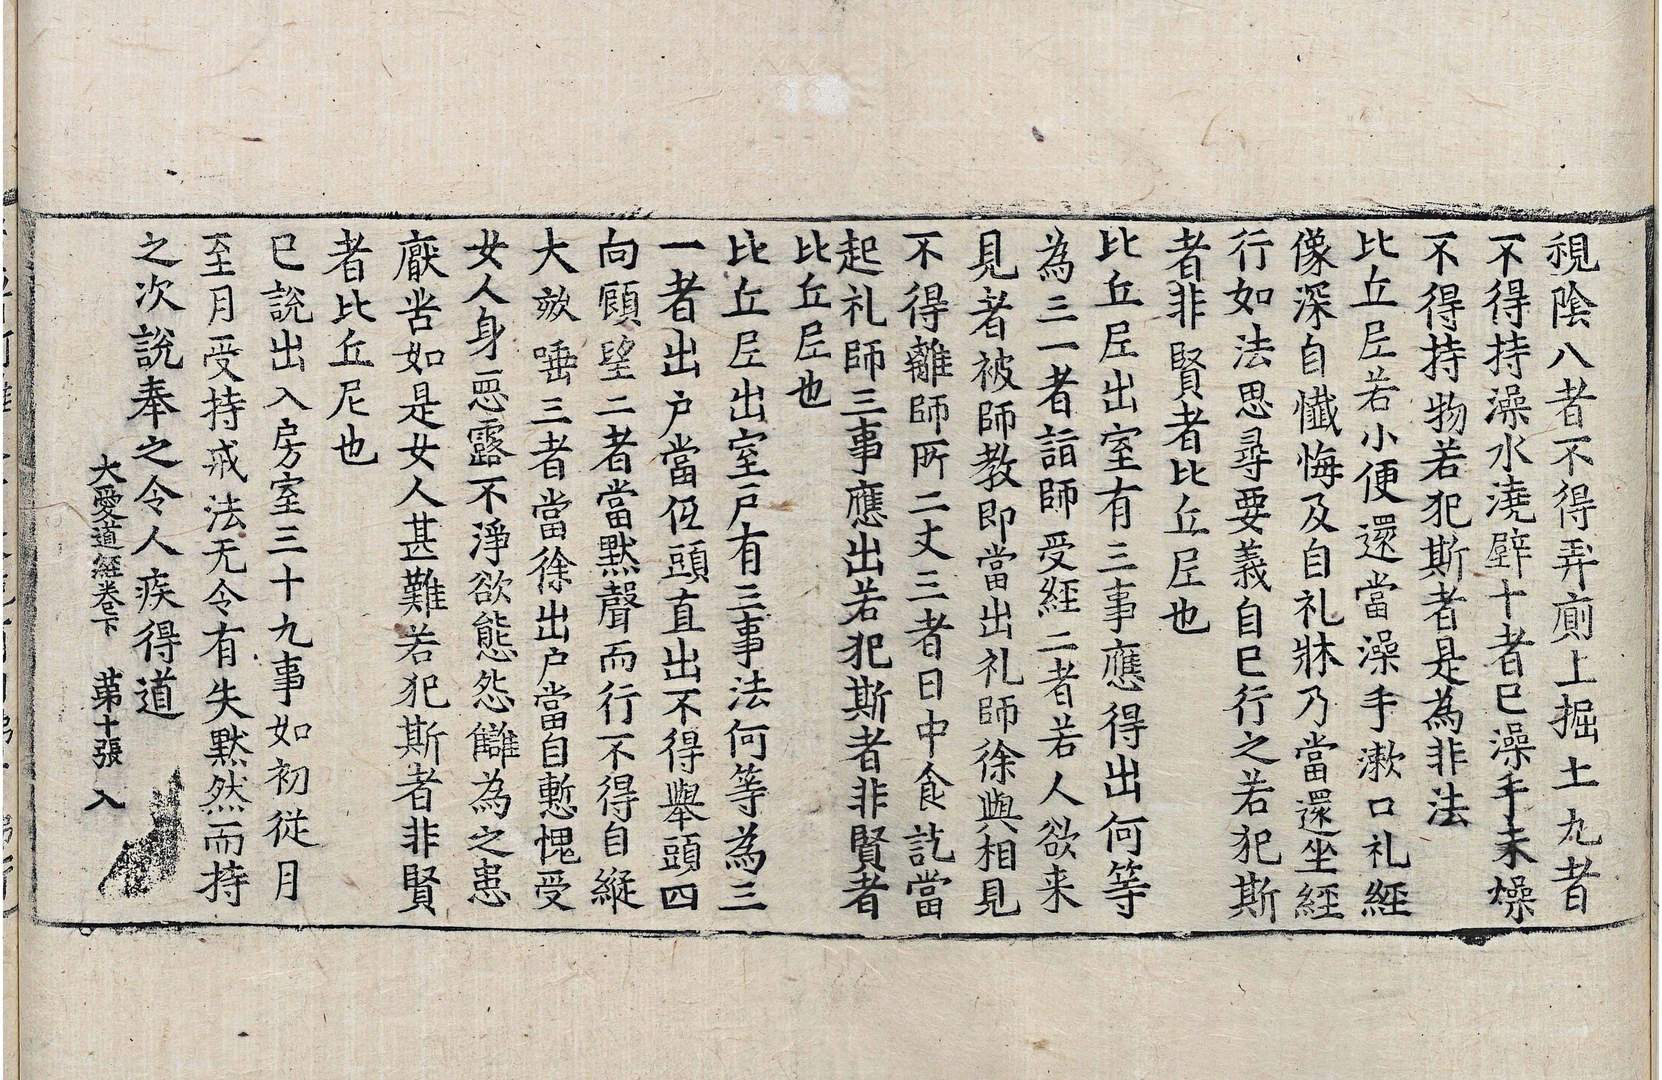 視陰八者不得弄廁上掘土九者
不得持澡水澆壁十者已澡手未燥
不得持物若犯斯者是為非法
比丘𡰱若小便還當澡手漱口礼經
像深自懺悔及自礼牀乃當還坐經
行如法思尋要義自已行之若犯斯
者非賢者比丘𡰱也
比丘𡰱出室有三事應得出何等
為三一者詣師受經二者若人欲来
見者被師教即當出礼師徐與相見
不得離師所二丈三者日中食訖當
起礼師三事應出若犯斯者非賢者
比丘𡰱也
比丘𡰱出室戸有三事法何等為三
一者出户當低頭直出不得舉頭四
向顧望二者當黙聲而行不得自縱
大欬唾三者當徐出户當自慙愧受
女人身惡露不淨欲態怨讎為之患
厭苦如是女人甚難若犯斯者非賢
者比丘尼也
已說出入房室三十九事如初従月
至月受持戒法无令有失黙然而持
之次說奉之令人疾得道
大愛道經卷下 苐十張 入